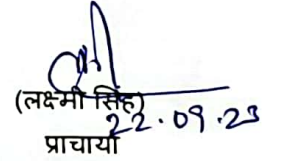 (लक्ष्मी सिंह)
22.09.23
प्राचार्या